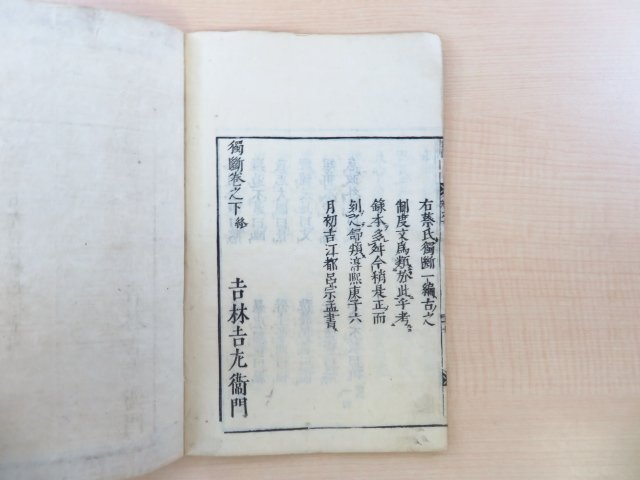 右蔡氏獨斷一編古之
制度文爲類於此乎考
錄本多舛今稍是正而
刻之舒頖淳熙庚子六
月初吉江都呂宗孟書
獨斷卷之下終
吉林吉左衞門